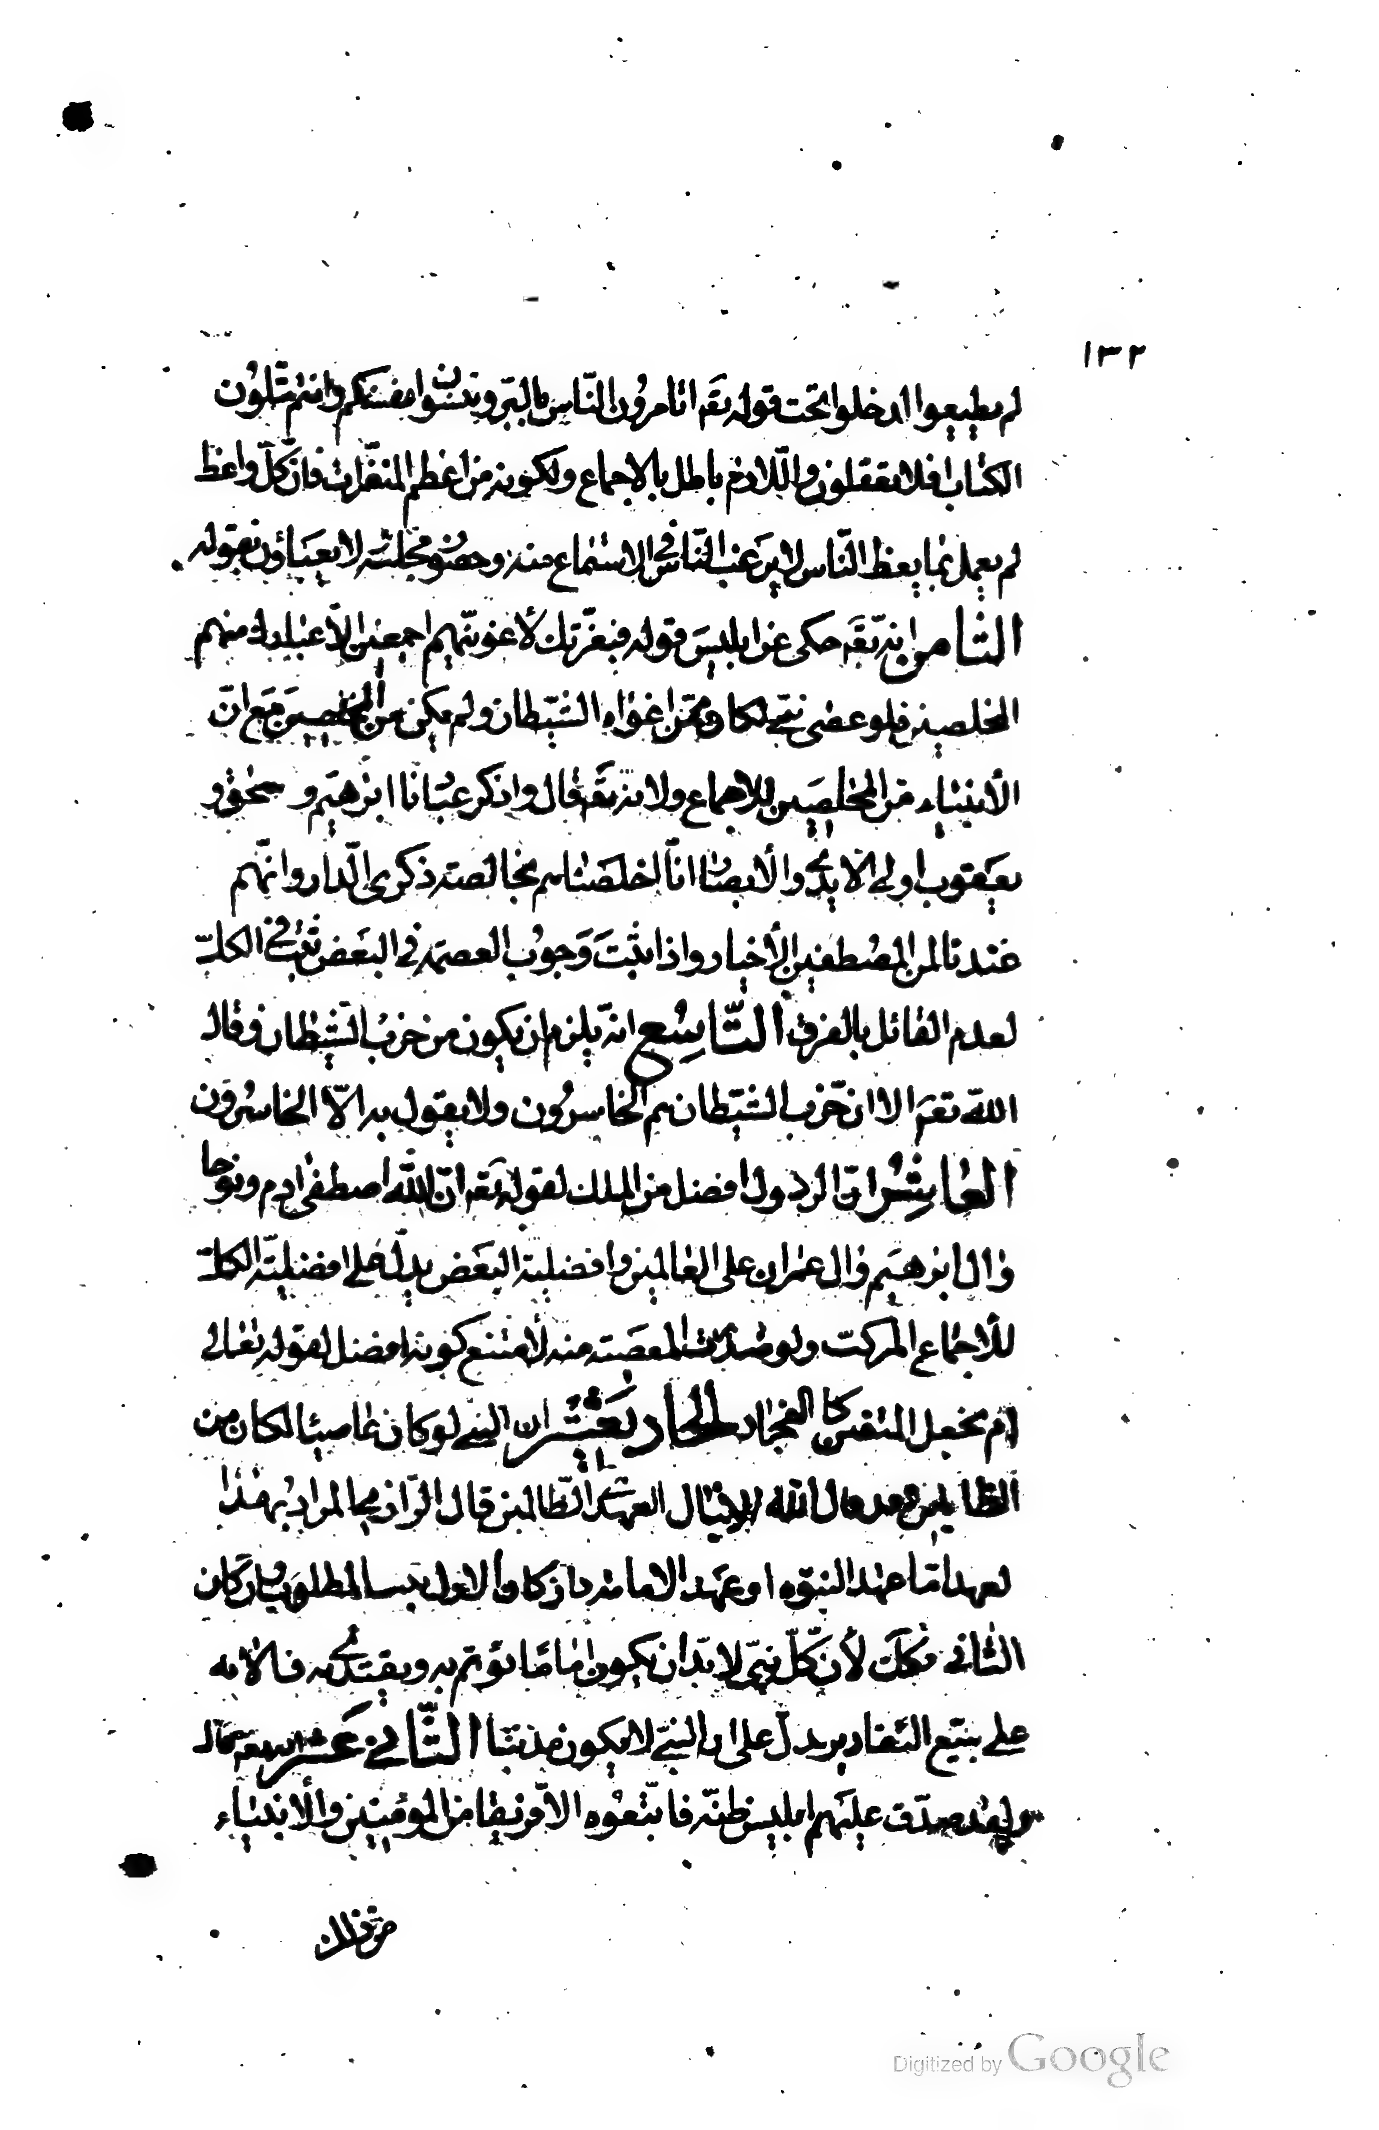 ١٣٢
لم يطيعوا الدخلوا تحت قوله تقه اتامرون النّاس بالبّر وتنسون انفسكم وانتم تتلون
الكتاب افلا تعقلون واللّازم باطل بالاجماع ولكونه من اعظم المنفّرات فانّ كلّ واعظ
لم يعمل بما يعظ النّاس لا يرغب النّاس في الاستماع منه وحضور مجلسه لا يعبئون بقوله
الثّامن انه تقه حكى عن ابليس قوله فبعزّتك لأغوينّهم اجمعين الّا عبادك منهم
المخلصين فلو عصى نبّي لكان ممّن اغواه الشّيطان ولم يكن من المخلصين مع انّ
الأنبياء من المخلصين للاجماع ولانه تقه قال واذكر عبادنا ابرهيم و سحق و
يعقوب اولي الايدي والأبصار انّا اخلصناهم بخالصته ذكرى الدّار وانّهم
عندنا لمن المصطفين الأخيار واذا ثبت وجوب العصمة في البعض ثبت في الكلّ
لعدم القائل بالفرق التّاسع انه يلزم ان يكون من حزب الشّيطان وقال
اللّه تعه الا انّ حزب الشّيطان هم الخاسرون ولا يقول به الّا الخاسرون
العاشر انّ الرسول افضل من الملك لقوله تقه انّ اللّه اصطفى ادم ونوحا
وال ابرهيم وال عمران على العالمين وافضلية البعض يدلّ على افضليّة الكلّ
للأجماع المركب ولو صدرت المعصته منه لأمتنع كونه افضل لقوله تعالى
ام نجعل المتقين كالفجار الحادي عشر ان النبي لو كان عاصيا لكان من
الظالمين وقد قال اللّه لا ينال العهدي الظّالمين قال الرّازي المراد بهذا
لعهد امّا عهد النبوّه او عهد الامامه فان كان الاول المطلوب وان كان
الثّاني فكك لأن كلّ نبيّ لا بدّ ان يكون اماما يؤتم به ويقتدي به فالاية
على يدلّ على ان النبيّ لا يكون مذنبا الثّاني عشر انه تقه قال
ولقد صدّق عليهم ابليس ظنّه فاتّبعوه الّا فريقا من المؤمنين والأنبياء
من ذلك
Digitized by Google